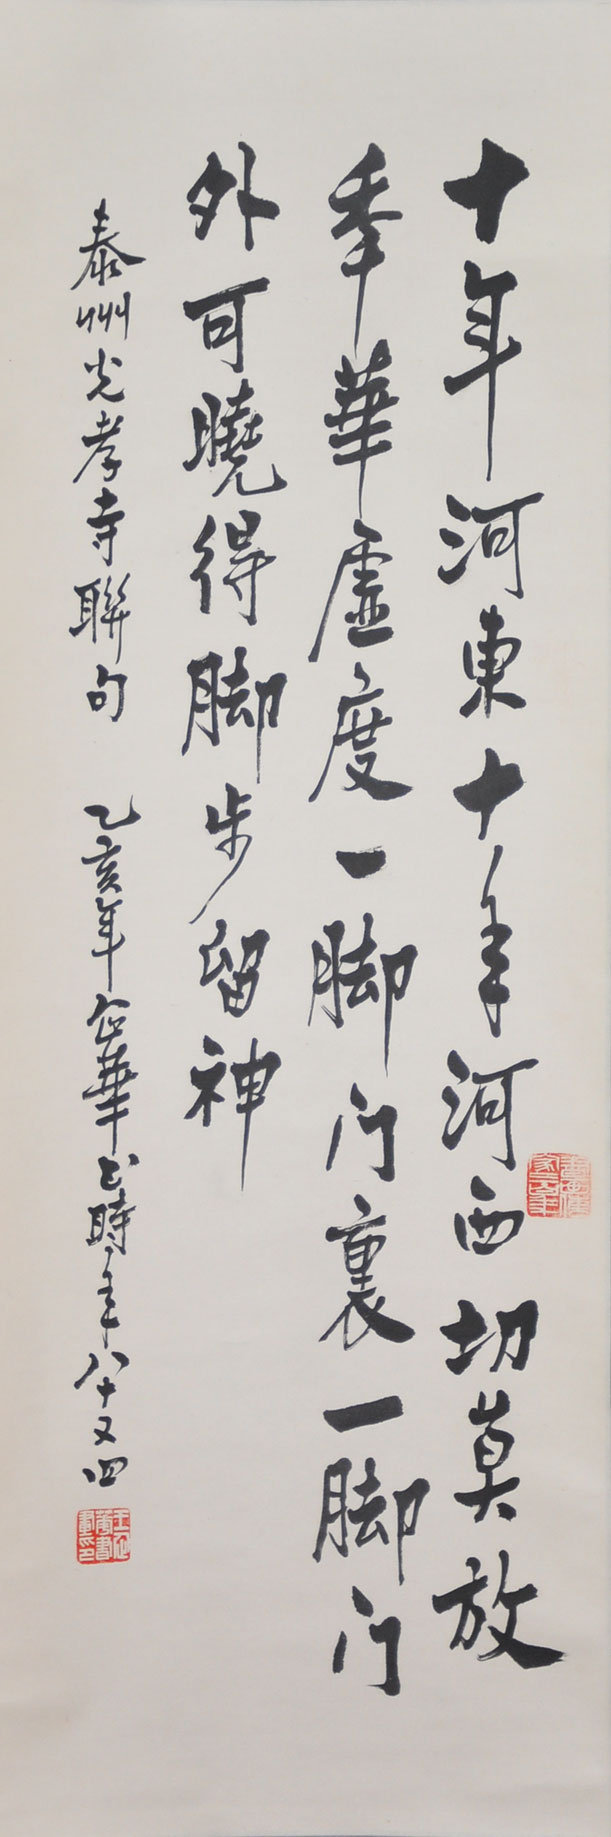 十年河東十年河西切莫放
年華虛度一脚门裏一脚门
外可曉得脚步留神
泰州光孝寺聯句 乙亥年企華书時年八十又四
王企華書畫印